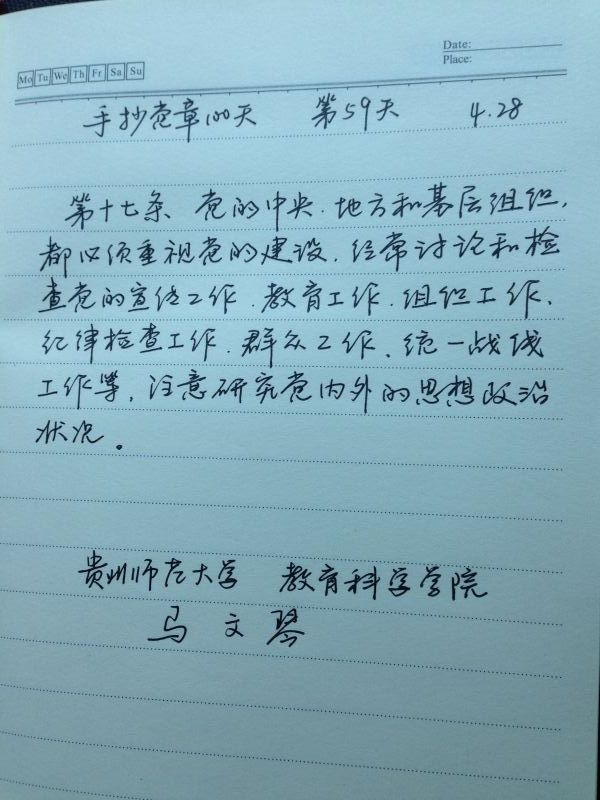 Mo Tu We Th Fr Sa Su
Date:
Place:
手抄党章100天 第59天 4.28
第十七条、党的中央、地方和基层组织,
都必须重视党的建设,经常讨论和检
查党的宣传工作、教育工作、组织工作、
纪律检查工作、群众工作、统一战线
工作等,注意研究党内外的思想政治
状况。
贵州师范大学 教育科学学院
马文琴